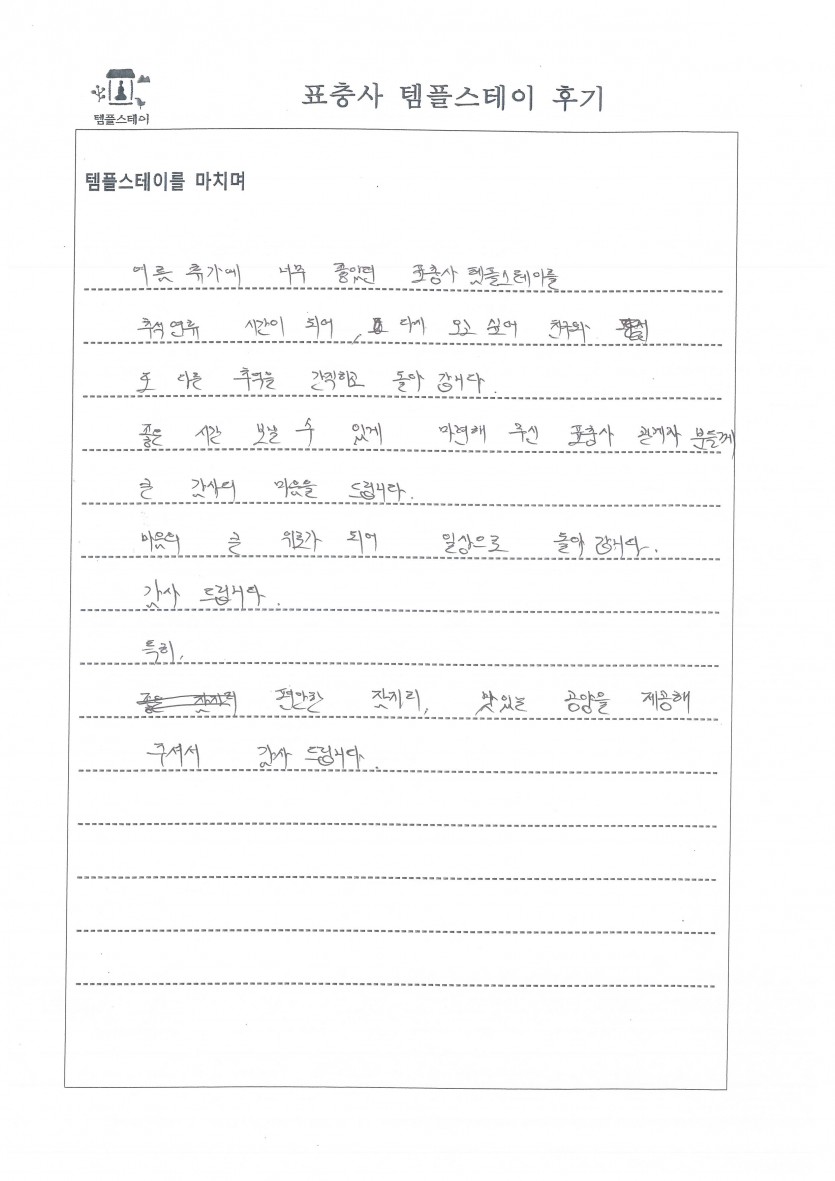 템플스테이
표충사 템플스테이 후기
템플스테이를 마치며
여름 휴가에 너무 좋았던 표충사 템플스테이를
추석 연휴 시간이 되어, 다시 오고 싶어 친구와
또 다른 추억을 간직하고 돌아 갑니다.
좋은 시간 보낼 수 있게 마련해 주신 표충사 관계자 분들께
큰 감사의 마음을 드립니다.
마음의 큰 위로가 되어 일상으로 돌아 갑니다.
감사 드립니다.
특히,
편안한 잠자리, 맛있는 공양을 제공해
주셔서 감사 드립니다.